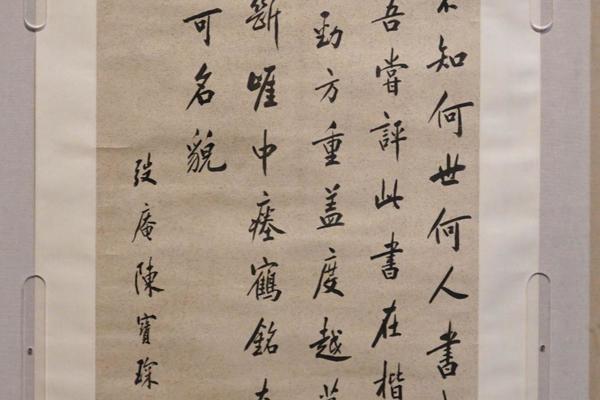 知何世何人書
吾嘗評此書在楷
勁方重蓋度越
斷崖中瘞鶴銘
可名貌
弢庵陳寶琛